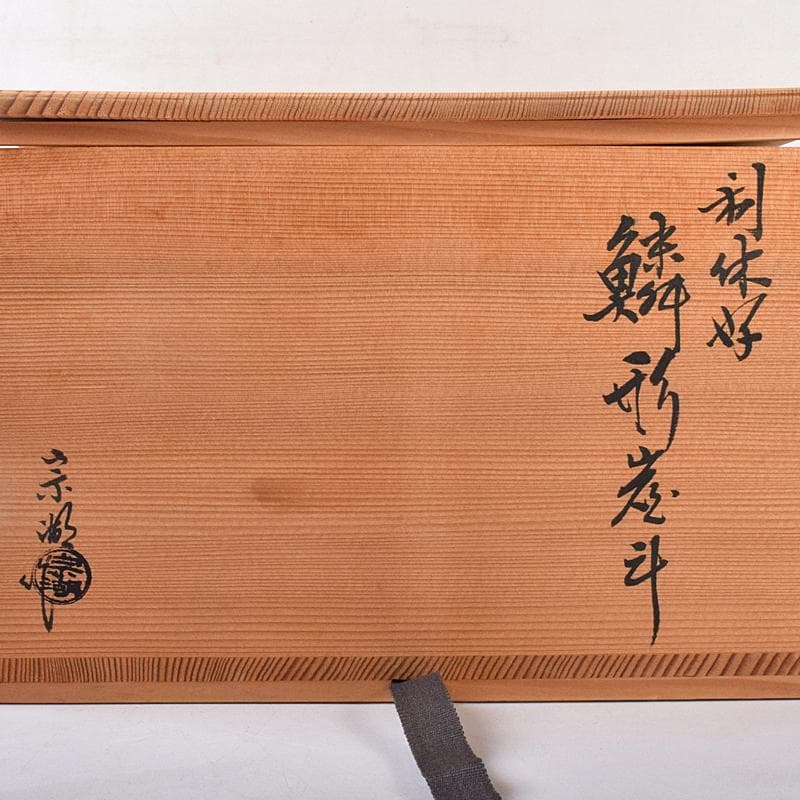 利休好
鱗形炭斗
宗湖作